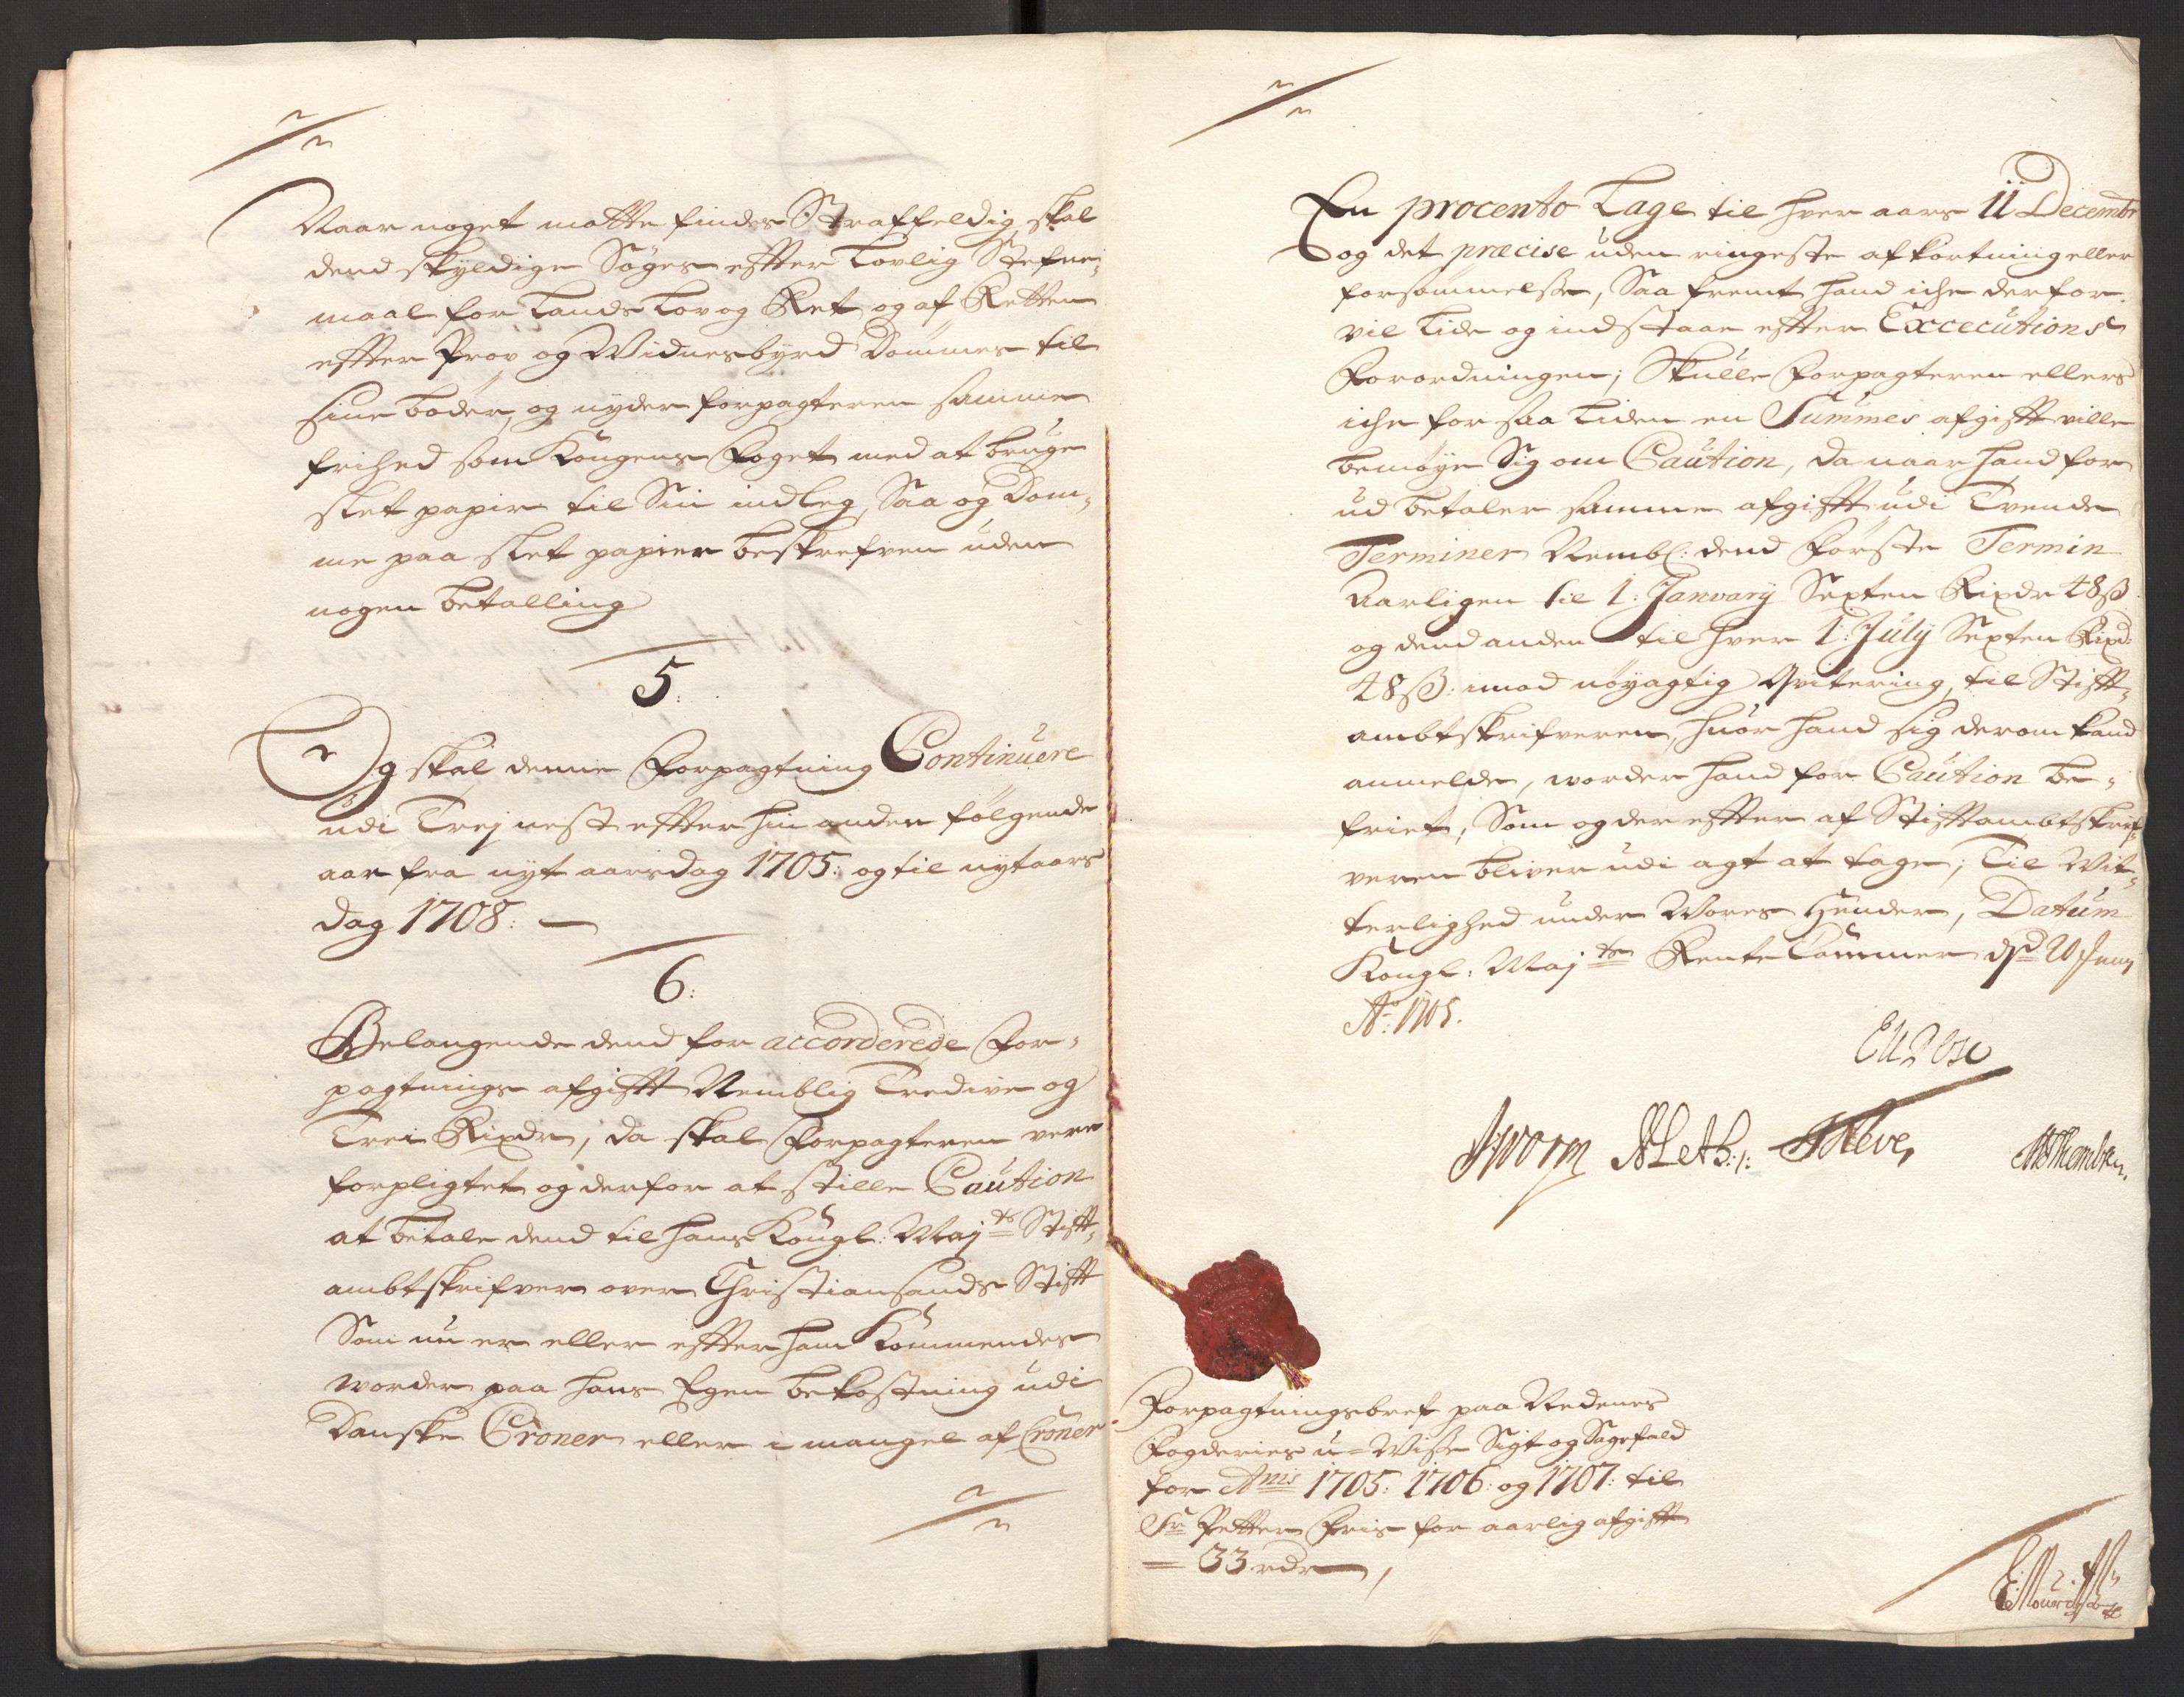 Naar noget motte findes Straffeldig, skal
dend skyldige Søges effter Lovlig Stefne¬
maal for Lands Lov og Ret og af Retten
effter Prov og Widnesbyrd Dømmes til
sine bøder, og nyder forpagteren samme
frihed som Kongens Foget med at bruge
slet papir til Sin indleg, Saa og Dom¬
me paa slet papier beskrefven uden
nogen betalling
5.
Og skal denne Forpagtning Continuere
udi Trej nest effter hin anden følgende
aar fra nyt aarsdag 1705: og til nytaars
dag 1708:
6:
Belangende dend for accorderede For¬
pagtnings afgifft Nemblig Tredive og
Trei Rixdr, da skal Forpagteren vere
forpligtet og derfor at stille Caution
at betale dend til hans Kongl: Majts Stifft¬
ambtskrifver over Christiansands Stifft
Som nu er eller effter ham Kommendes
worder paa hans Egen bekostning udi
Danske Croner eller i mangel af Croner
En procento Lage til hver aars 11 Decembr
og det præcise uden ringeste afkortning eller
forsømmelse, Saa fremt hand iche derfor
vil Lide og indstaae effter Excecutions
Forordningen; Skulle Forpagteren ellers
iche for saa Liden en Summes afgifft ville
bemøye Sig om Caution, da naar hand for
ud betaler samme afgifft udi Tvende
Terminer Nembl: dend Første Termin
Aarligen til 1: January Sexten Rixdr 48 ß
og dend anden til hver 1: July Sexten Rixd:
48 ß: imod nøyagtig Qvitering, til Stifft¬
ambtskrifveren, huor hand sig derom kand
anmelde, worder hand for Caution be¬
friet, Som og der effter af Stifftambtskrif¬
veren bliver udi agt at tage; Til Vit¬
terlighed under Wores Hender, Datum
Kongl: Majts Rente Cammer dsd 20 Juny
Ao 1705.
JWorm
Forpagtningsbref paa Nedenes
Fogderies u=Wisse Sigt og Sagefald
for Anis 1705: 1706: og 1707: til
Sr Petter Friis for aarlig afgifft
= 33 rdr